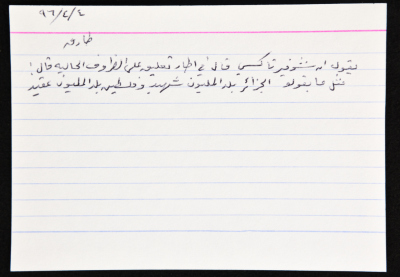 ٩٦/٤/٤
طارق
يقول ان شوفير تاكسي قال في اطار تعليقه على الظروف الحالية قال !
مثل ما بقولو الجزائر بلد المليون شهيد وفلسطين بلد المليون عقيد